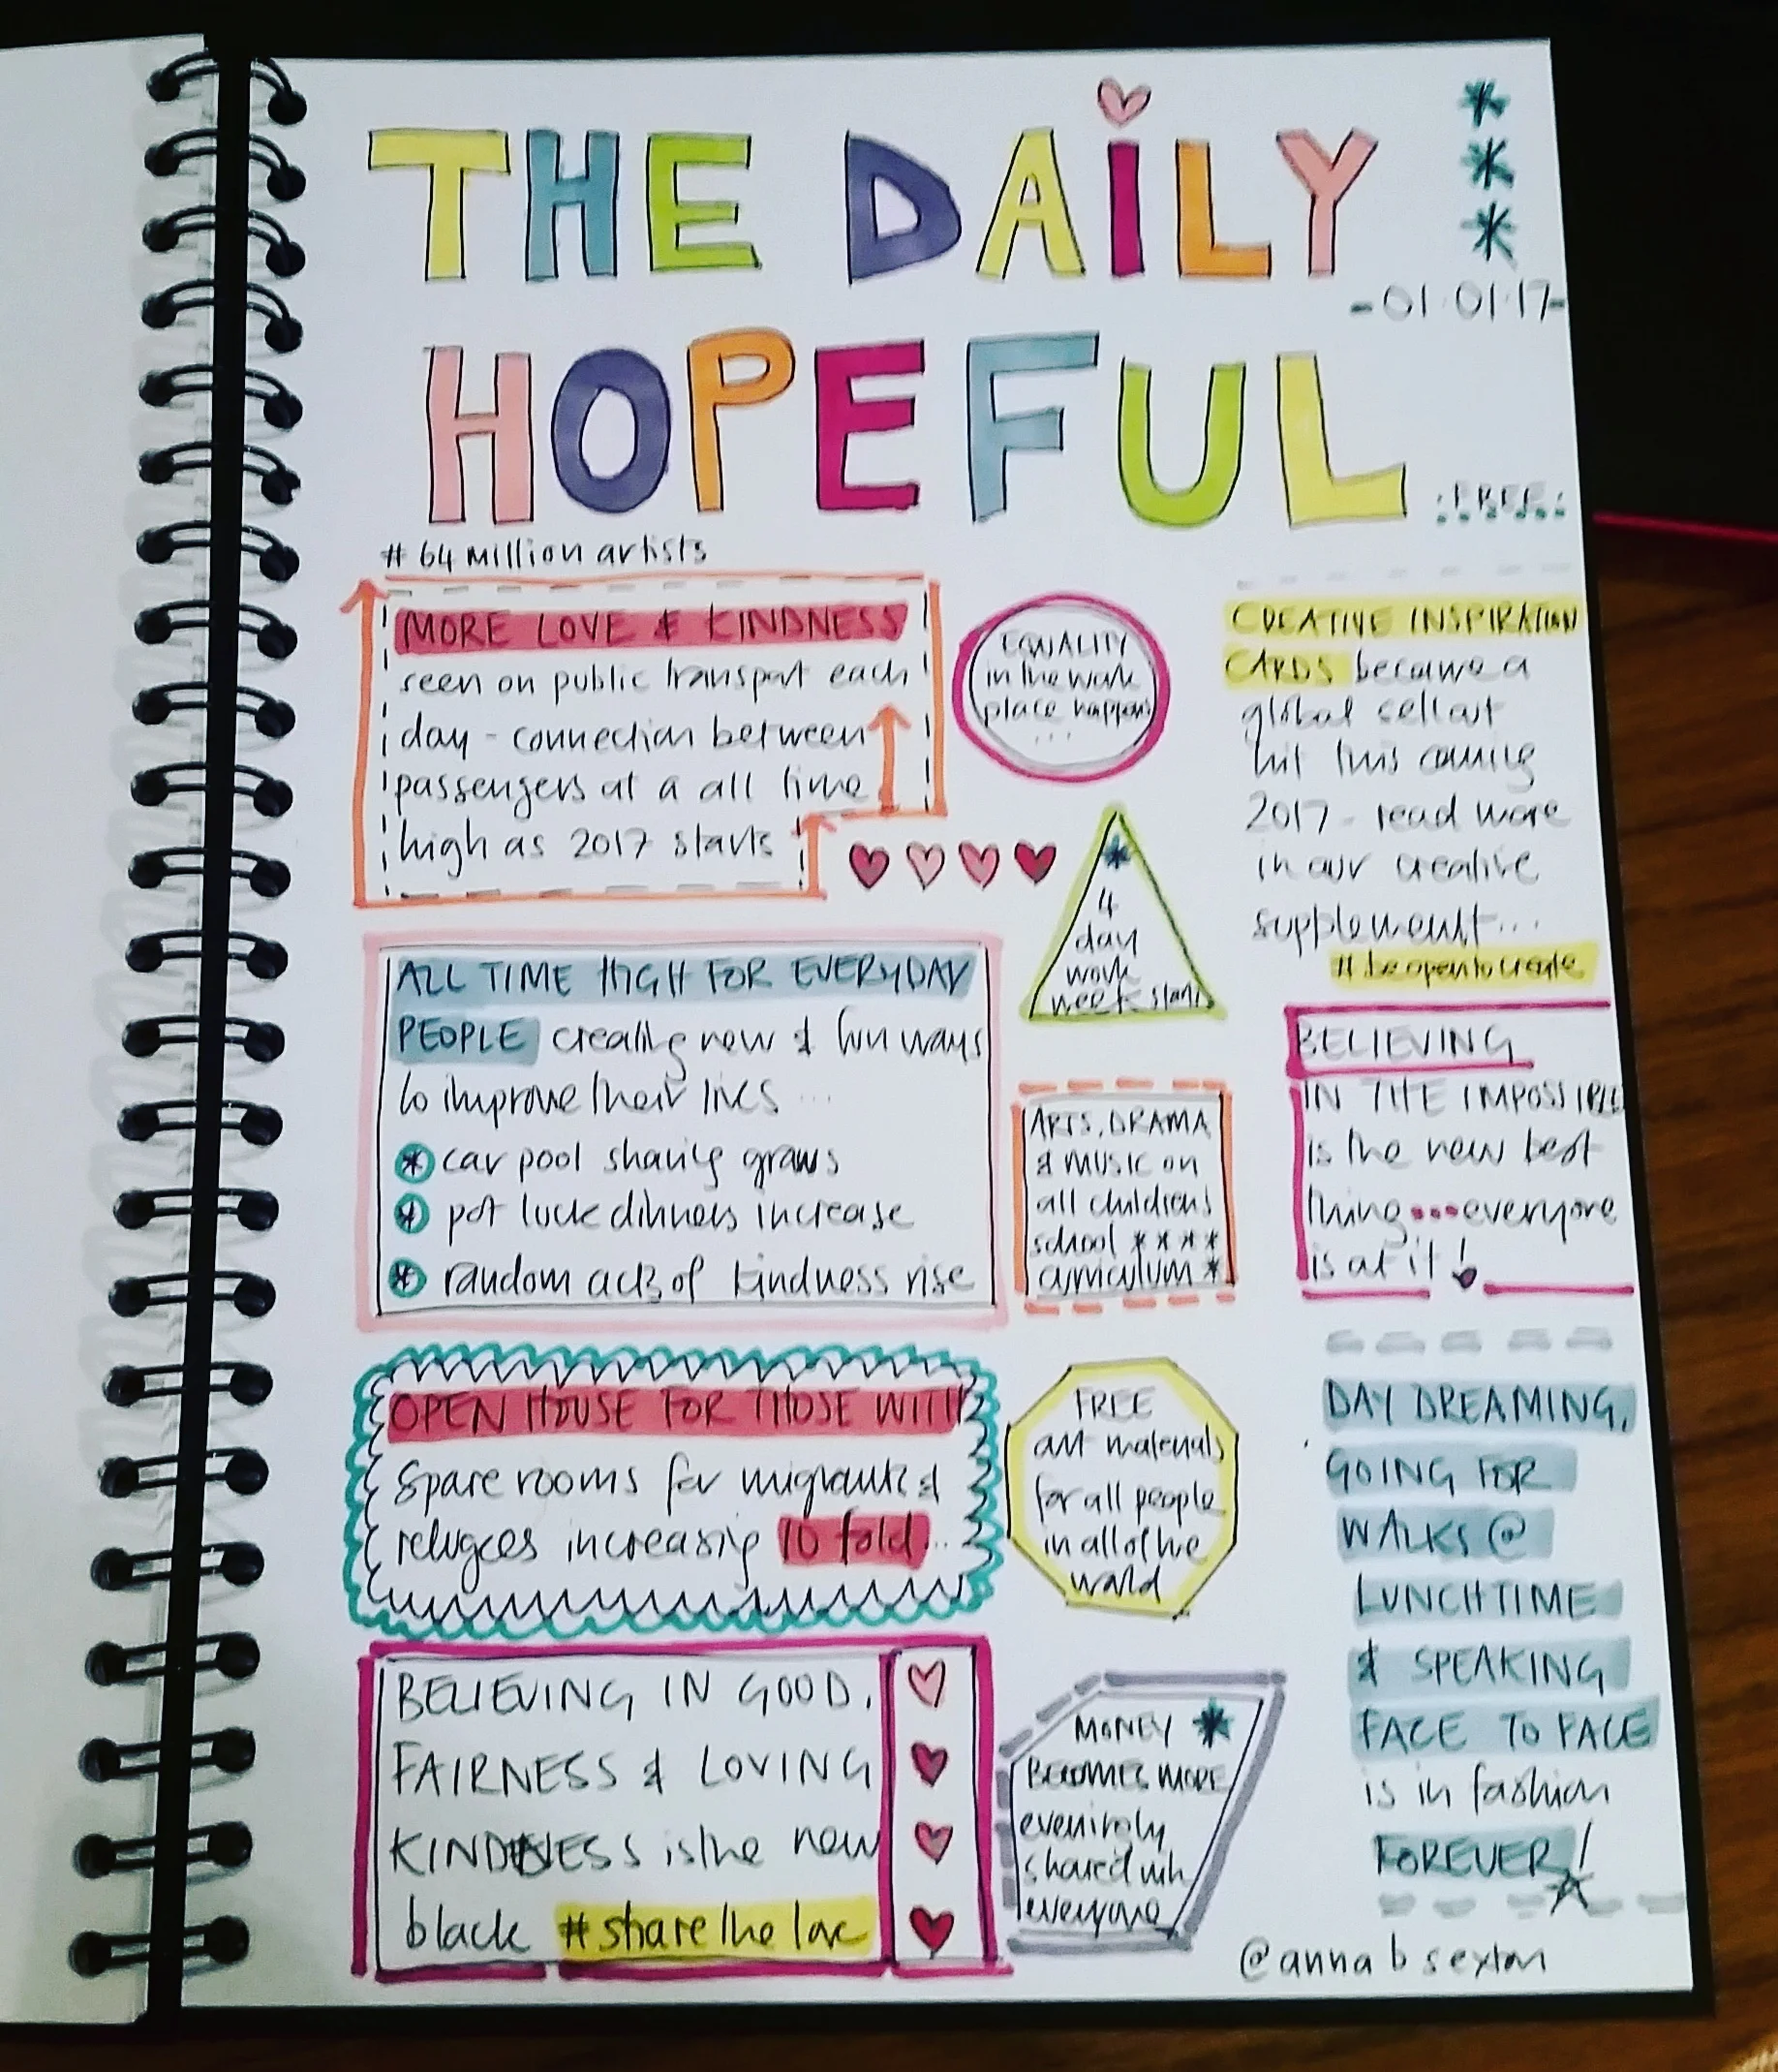 THE DAiLY
-01·01·17-
HOPEFUL
:FREE:
# 64 million artists
MORE LOVE & KINDNESS
seen on public transport each
day - connection between
passengers at a all time
high as 2017 starts
EQUALITY
in the work
place happens
...
CREATIVE INSPIRATION
CARDS become a
global sellout
hit this coming
2017 - read more
in our creative
supplement...
# be open to create
4
day
work
week starts
ALL TIME HIGH FOR EVERYDAY
PEOPLE creating new & fun ways
to improve their lives ...
* car pool sharing grows
* pot luck dinners increase
* random acts of kindness rise
ARTS, DRAMA
& MUSIC on
all childrens
school ****
curriculum *
BELIEVING
IN THE IMPOSSIBLE
is the new best
thing...everyone
is at it!
OPEN HOUSE FOR THOSE WITH
spare rooms for migrants &
refugees increasing 10 fold...
FREE
art materials
for all people
in all of the
world
DAY DREAMING,
GOING FOR
WALKS @
LUNCHTIME
& SPEAKING
FACE TO FACE
is in fashion
FOREVER!
BELIEVING IN GOOD,
FAIRNESS & LOVING
KINDNESS is the new
black #share the love
MONEY *
BECOMES MORE
shared with
everyone
@annabsexton